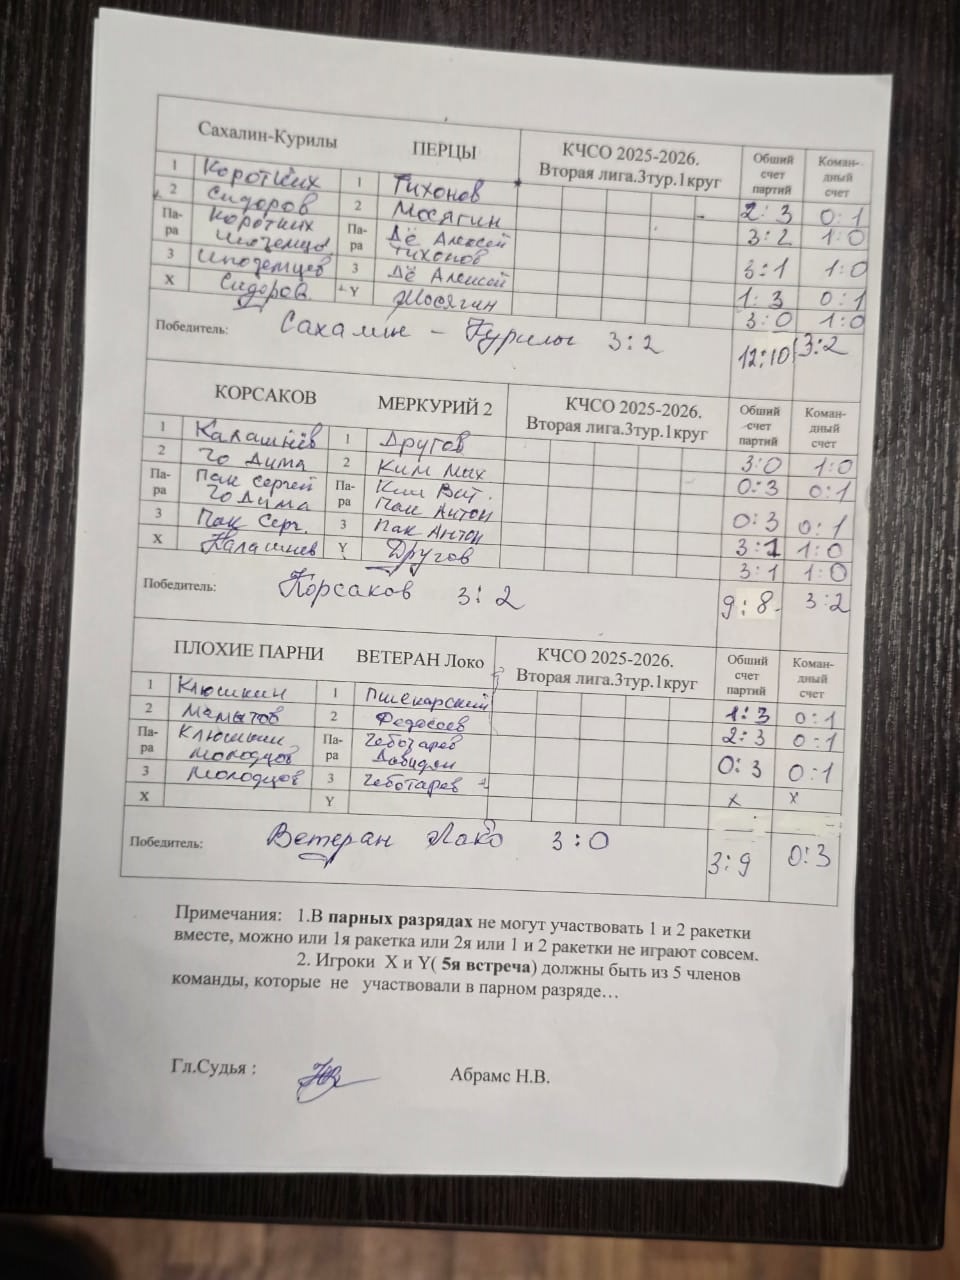 Сахалин-Курилы ПЕРЦЫ КЧСО 2025-2026. Вторая лига.3тур.1круг Общий счет партий Коман-дный счет
1 Коротких 1 Тихонов 2:3 0:1
2 Сидоров 2 Мосягин 3:2 1:0
Па-ра Коротких Иноземцев Па-ра Дё Алексей Тихонов 3:1 1:0
3 Иноземцев 3 Дё Алексей 1:3 0:1
X Сидоров Y Мосягин 3:0 1:0
Победитель: Сахалин - Курилы 3:2 12:10 3:2
КОРСАКОВ МЕРКУРИЙ 2 КЧСО 2025-2026. Вторая лига.3тур.1круг Общий счет партий Коман-дный счет
1 Калашнёв 1 Другов 3:0 1:0
2 Чо Дима 2 Ким Мих 0:3 0:1
Па-ра Пак Сергей Чо Дима Па-ра Ким Вит. Пак Антон 0:3 0:1
3 Пак Серг. 3 Пак Антон 3:1 1:0
X Калашнев Y Другов 3:1 1:0
Победитель: Корсаков 3:2 9:8 3:2
ПЛОХИЕ ПАРНИ ВЕТЕРАН Локо КЧСО 2025-2026. Вторая лига.3тур.1круг Общий счет партий Коман-дный счет
1 Клюшкин 1 Пшекарский 1:3 0:1
2 Мамытов 2 2:3 0:1
Па-ра Клюшкин Молодцов Па-ра 0:3 0:1
3 Молодцов 3 Чеботарев x x
X Y
Победитель: Ветеран Локо 3:0 3:9 0:3
Примечания: 1.В парных разрядах не могут участвовать 1 и 2 ракетки
вместе, можно или 1я ракетка или 2я или 1 и 2 ракетки не играют совсем.
2. Игроки X и Y( 5я встреча) должны быть из 5 членов
команды, которые не участвовали в парном разряде…
Гл.Судья : Абрамс Н.В.